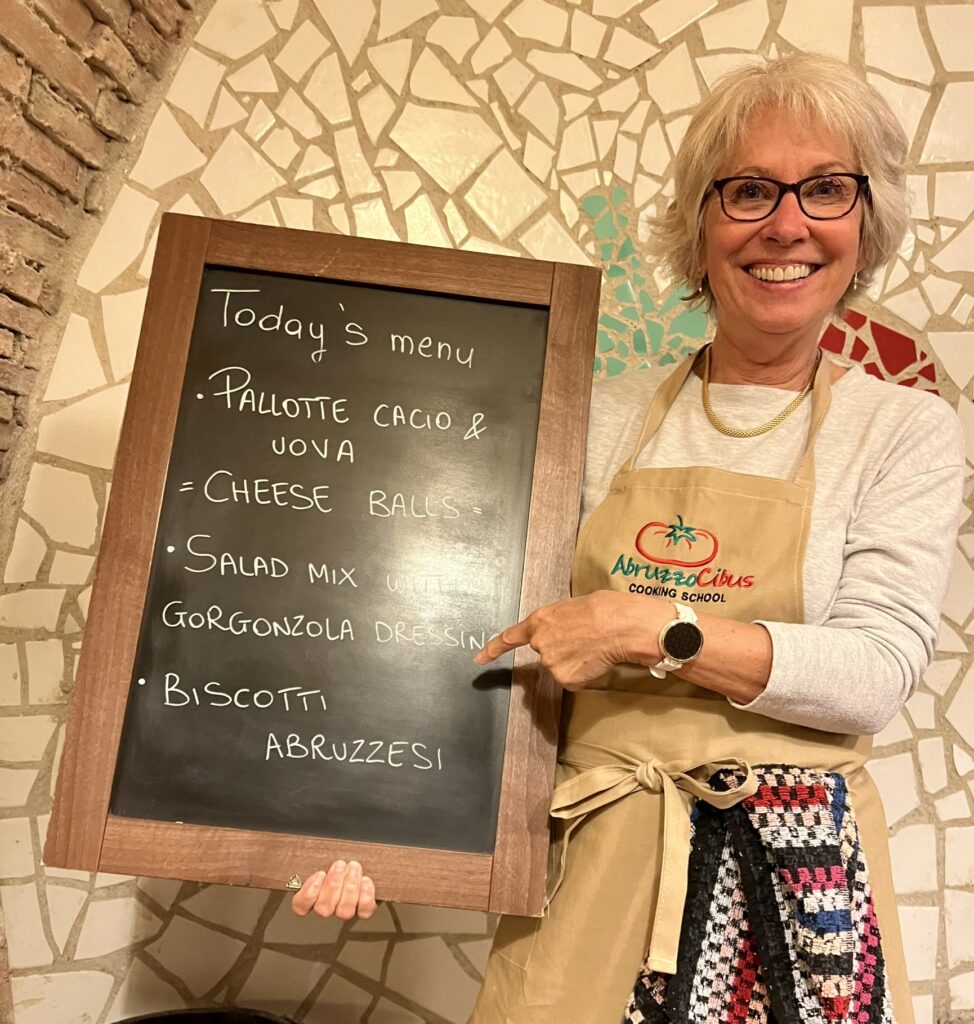 Today's menu
• PALLOTTE CACIO &
UOVA
= CHEESE BALLS =
• SALAD MIX WITH
GORGONZOLA DRESSING
• BISCOTTI
ABRUZZESI
AbruzzoCibus
COOKING SCHOOL